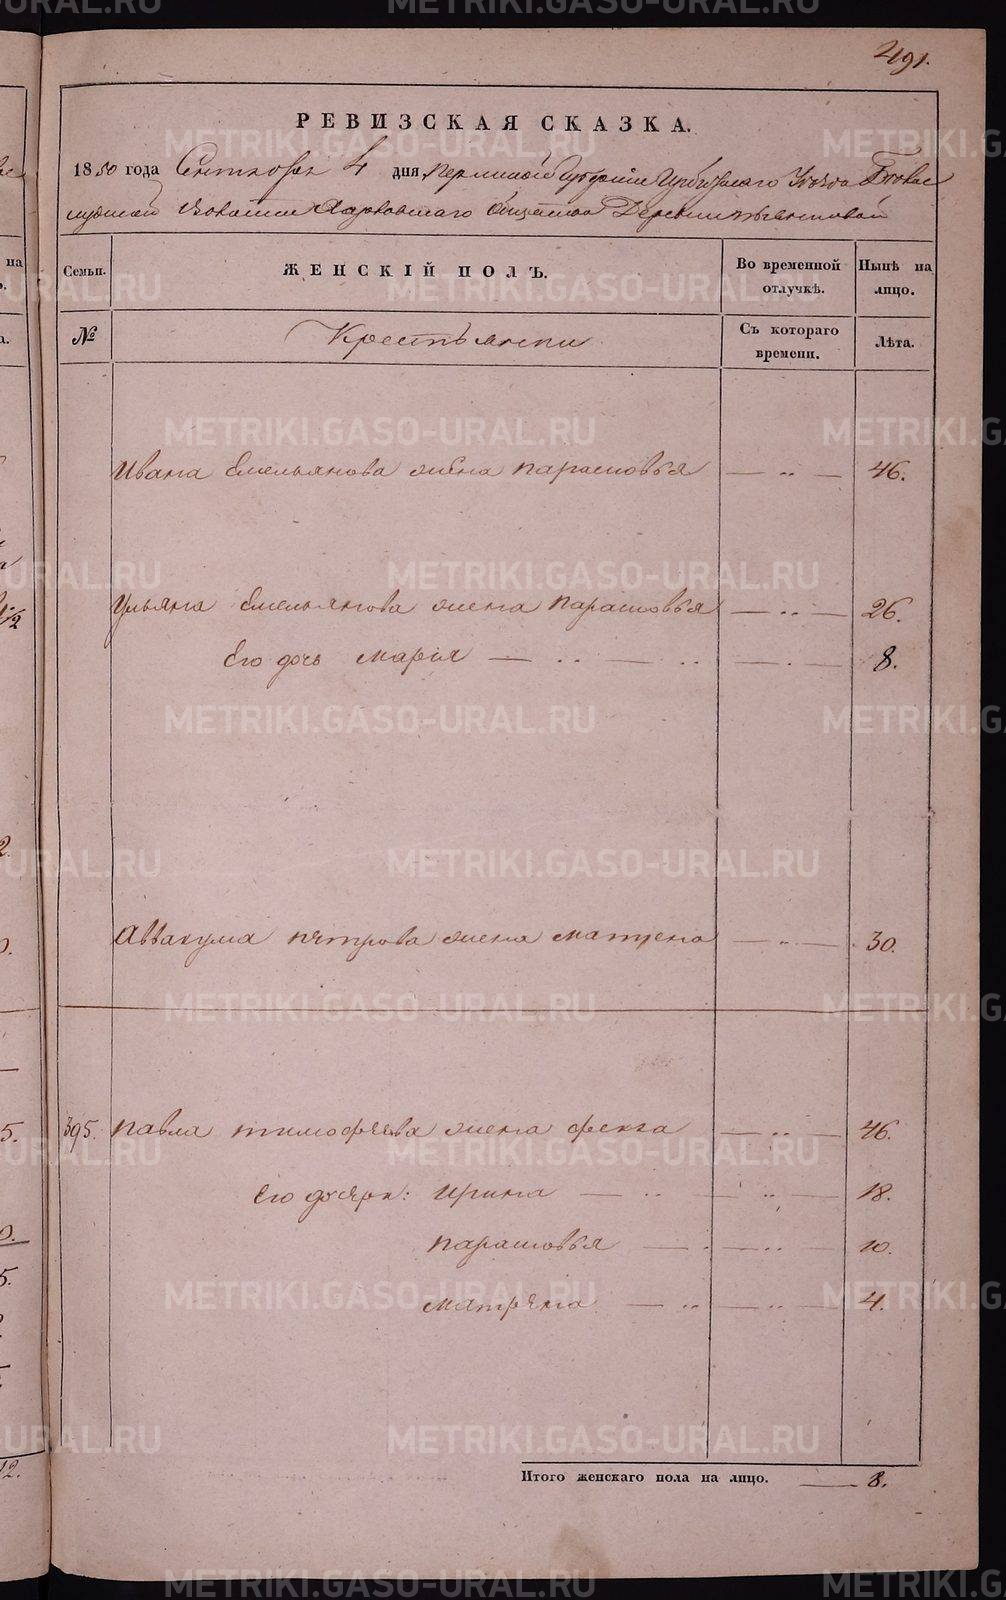 491.
РЕВИЗСКАЯ СКАЗКА.
1850 года Сентября 4 дня Пермской Губернии Ирбитскаго Уезда
волости Харловскаго общества Деревни
Семьи. ЖЕНСКІЙ ПОЛЪ. Во временной отлучкѣ. Нынѣ на лицо.
№ Крестьянки Съ котораго времени. Лѣта.
Ивана Емельянова жена Парасковья — „ — 46.
Ульяна Емельянова жена Парасковья — „ — 26.
Его дочь Марія — „ — „ — . — 8.
Аввакума Петрова жена Матрена — „ — 30.
395. Павла Тимофеева жена Фекла — „ — 46.
Его дочери: Ирина — „ — „ — 18.
Парасковья — . — „ — 10.
Матрена — „ — „ — 4.
Итого женскаго пола на лицо. — 8.
METRIKI.GASO-URAL.RU